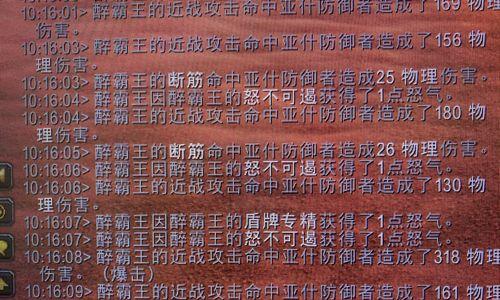 10:16:01> 醉霸王的近战攻击命中亚什防御者造成了169 物理
伤害。
10:16:03> 醉霸王的近战攻击命中亚什防御者造成了156 物
理伤害。
10:16:03> 醉霸王的断筋命中亚什防御者造成25 物理伤害。
10:16:04> 醉霸王因醉霸王的怒不可遏获得了1点怒气。
10:16:04> 醉霸王的近战攻击命中亚什防御者造成了180 物
理伤害。
10:16:05> 醉霸王的断筋命中亚什防御者造成26 物理伤害。
10:16:06> 醉霸王因醉霸王的怒不可遏获得了1点怒气。
10:16:06> 醉霸王的近战攻击命中亚什防御者造成了130 物
理伤害。
10:16:07> 醉霸王因醉霸王的盾牌专精获得了1点怒气。
10:16:07> 醉霸王因醉霸王的怒不可遏获得了1点怒气。
10:16:08> 醉霸王的近战攻击命中亚什防御者造成了318 物理
伤害。（爆击）
10:16:09> 醉霸王的近战攻击命中亚什防御者造成了161 物理